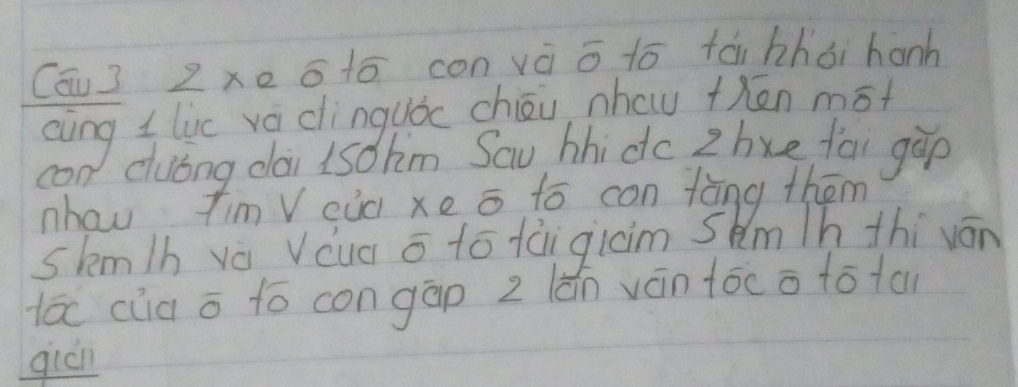 Câu 3 2 xe ô tô con và ô tô tải khởi hành
cùng 1 lúc và đi ngược chiều nhau trên một
con đường dài 150km Sau khi đc 2h xe tải gặp
nhau Tìm V của xe ô tô con tăng thêm
5km/h và V của ô tô tải giảm 5km/h thì vận
tốc của ô tô con gấp 2 lần vận tốc ô tô tải
giải